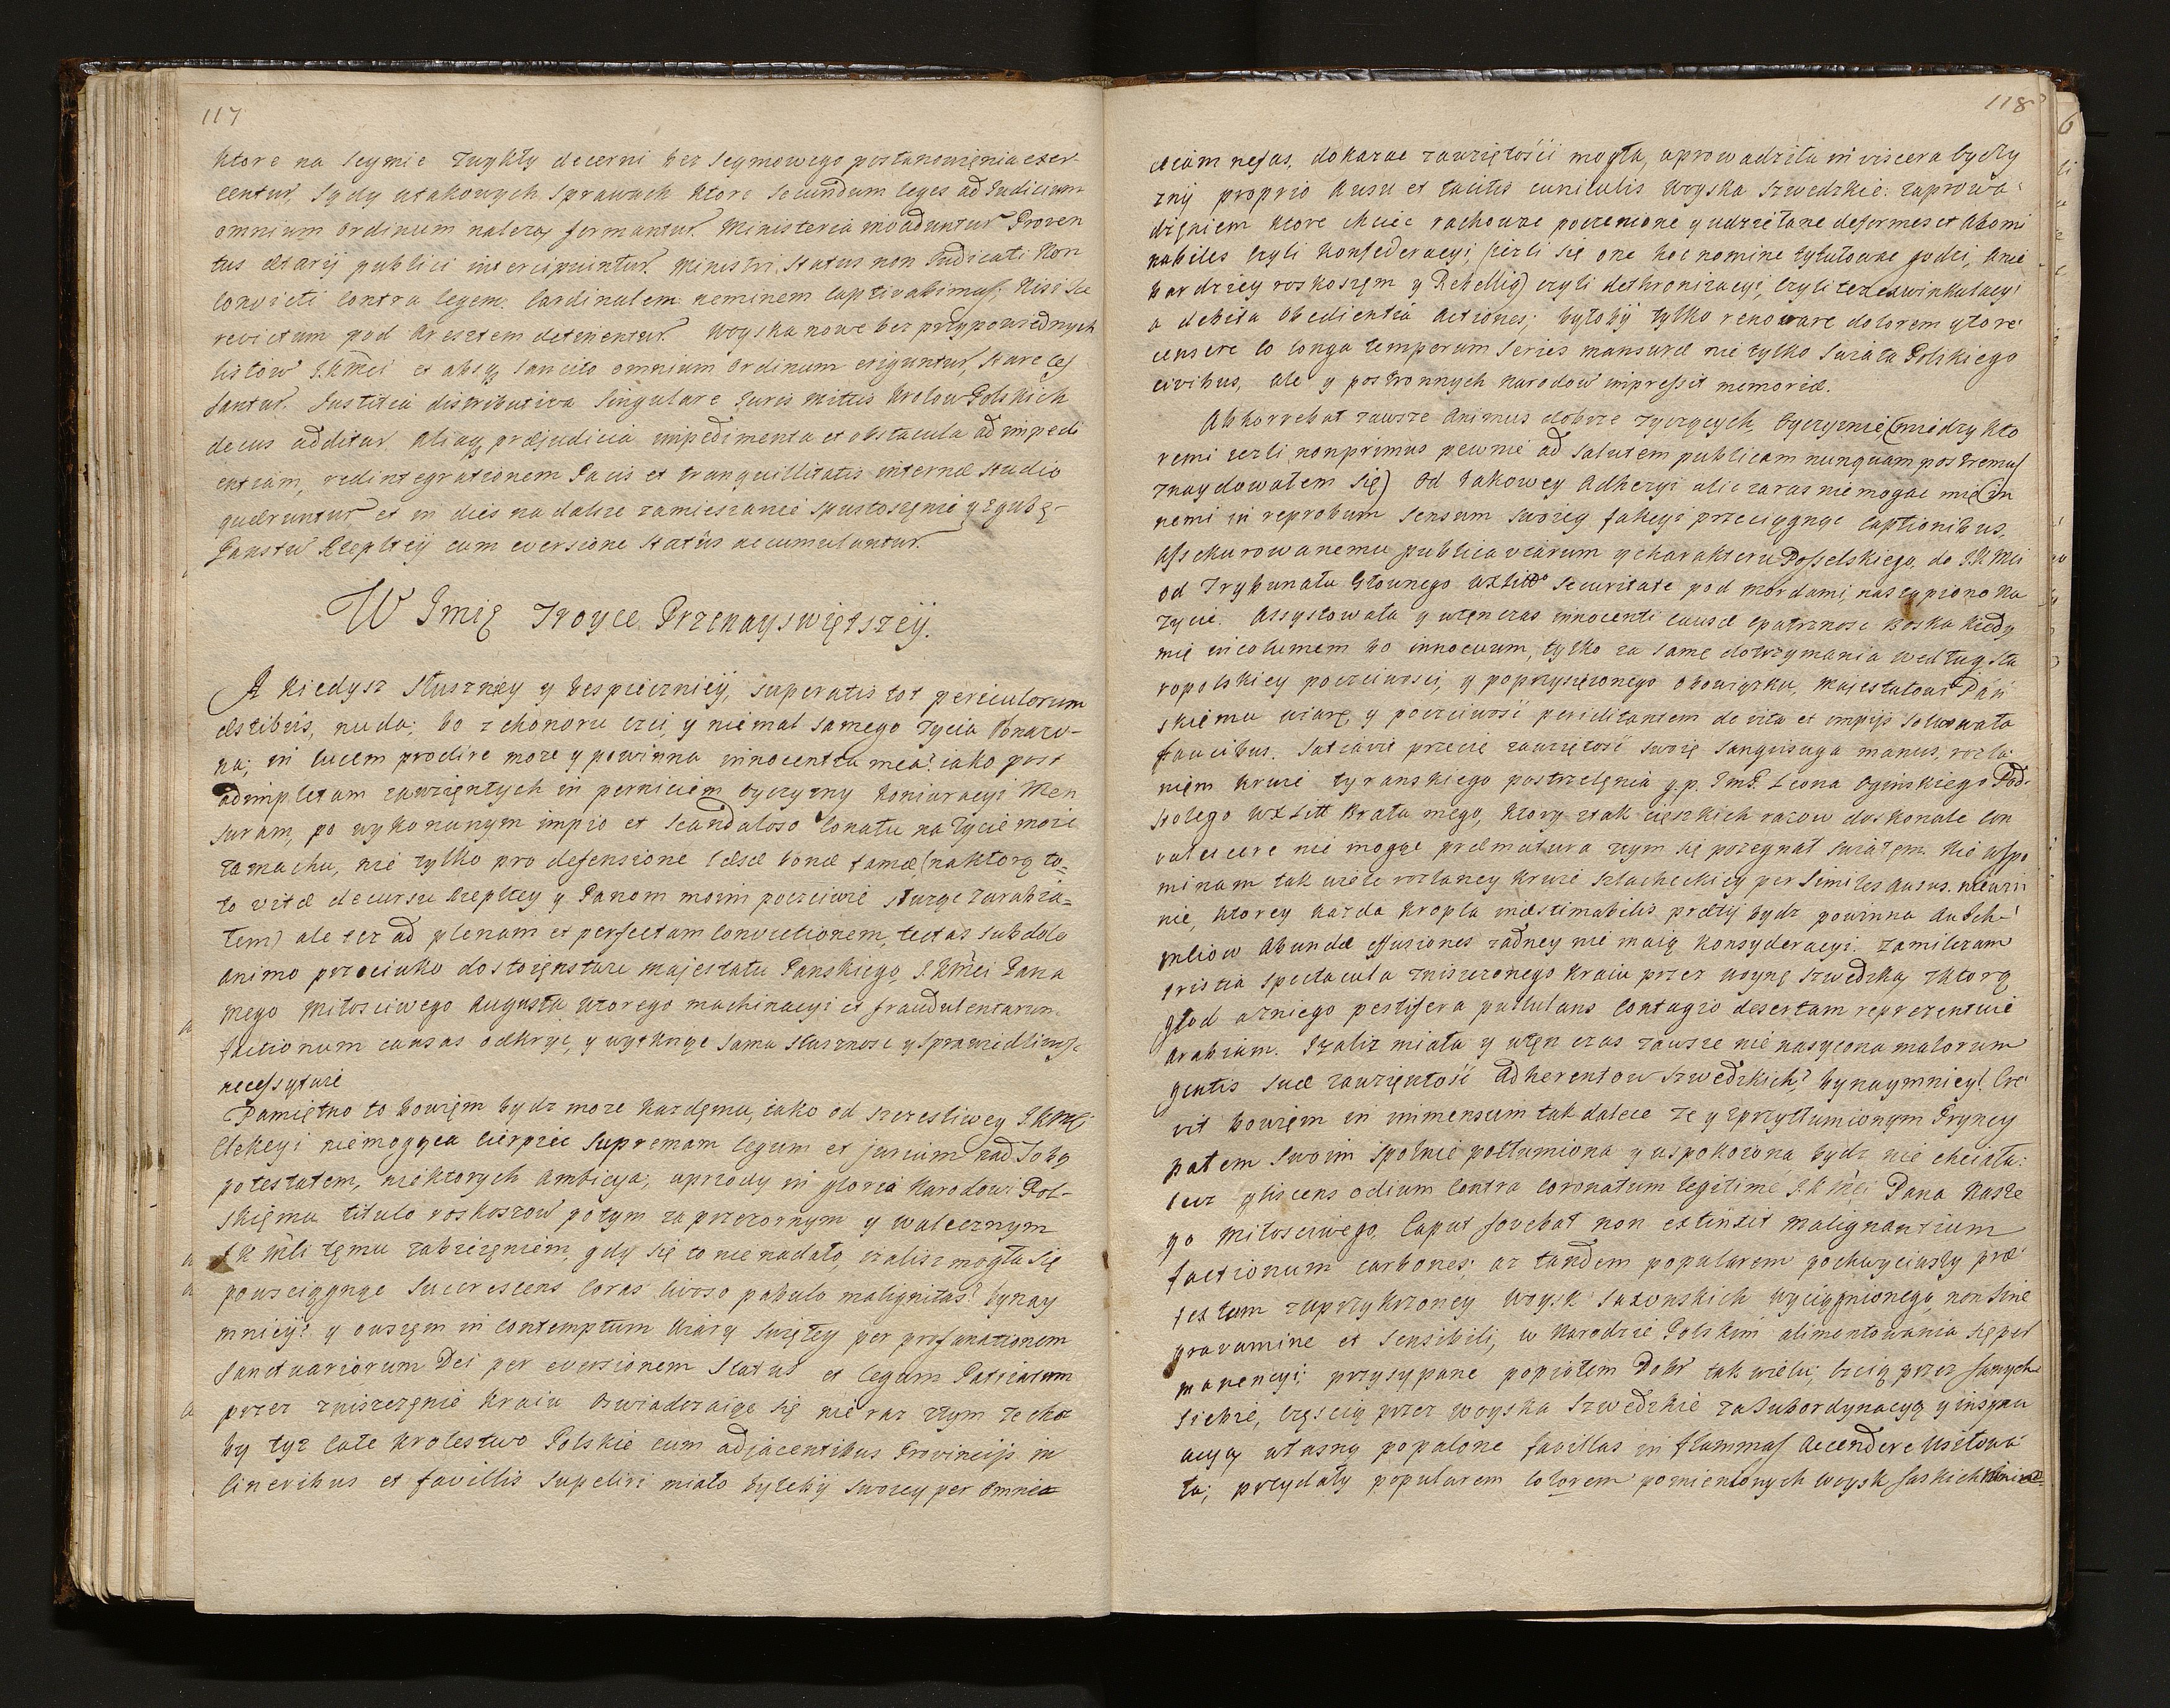 117
ktore na Seymie zwykły decerni bez Seymowego postanowięnia exer-
centur, Sądy utakowych sprawach ktore secundum leges ad Judicium
omnium ordinum należą formantur. Ministeria invaduntur Proven
tus ærarij publici intercipiuntur. Ministri status non Judicati Non
convicti contra legem Cardinalem neminem captivabimus: Nisi Iure
revictum pod Aresztem detinentur. Woyska nowe bez przypowiednych
listow J.K.Mci et absq sancito omnium ordinum eriguntur, stare ces
santur. Justitia distributiva singulare Juris Mittis Krolow Polskich
decus additur aliaq præjudicia impedimenta et obstacula ad impedi
entiam, redintegrationem Pacis et tranquillitatis internæ studio
quæruntur et in dies nadalsze zamieszanie spustoszęnie y zgubę-
Panstw Rzepltey cum eversione statûs accumulantur.
W Imię Troyce Przenayswiętszey.
A kiedysz słuszniey y bespieczniey, superatis tot periculorum
æstibus, nuda; bo z chonoru czci, y niemal samego życia obnażo-
na; in lucem prodire może y powinna innocentia mea? iako post
adimpletam zawziętych in perniciem oyczyzny koniuracyi Men
suram, po wykonanym impio et scandaloso conatu na życie moie
zamachu, nie tylko pro defensione læsæ bonæ famæ (naktorą to-
to vitæ decursu Rzepltey y Panom moim poczciwie służąc zarabia-
łem) ale też ad plenam et perfectam convictionem, tectas subdolo
animo przeciwko dostoięnstwu majestatu Panskiego, J.K.Mci Pana
mego Miłosciwego Augusta wtorego machinacyi et fraudulentarum
factionum causas odkryć, y wytknąc sama słusznosc y Sprawiedliwosc
necessytuie
Pamiętno to bowięm bydz może każdęmu, iako od szczesliwey J.K.Mci
Elekcyi niemogąca cierpiec Supremam legum et jurium nad Sobą
potestatem, niektorych ambicya; uprzody in gloria Narodowi Pol-
skięmu titulo rokoszow potym zaprzezornym y walecznym
J K Mci tęmu zabieżęniem, gdy się to nie nadało, izalisz mogła się
powsciągnąc succrescens coras livoso pabulo malignitas? bynay
mniey? y owszęm in contemptum Wiary Swiętey per profanationem
Sanctuariorum Dei per eversionem Status et legum Patriarum
przez zniszczęnie kraiu oswiadczaiąc się nie raz zżym że choc
by tyż całe Krolestwo Polskie cum adjacentibus Provincijs in
cineribus et favillis sepeliri miało byłeby swoiey per omnia
118
etiam nefas, dokazac zawziętości mogła, uprowadziła in viscera oyczy
zny proprio ausu et tacitis cuniculis woyska Szwedzkie: zaprowa-
dzęniem ktore chcieć rachowac poczenione y udziełane deformes et abomi
nabiles czyli Konfederacyi, (ieżli się one hoc nomine tytułowac godzi, a nie
bardziey roskoszęm y Rebellią) czyli dethronizacyi, czyli też exwinkulacyi
a debita obedientia actiones; byłoby tylko renovare dolorem y to re-
censere co longa temporum Series mansuræ nie tylko Swiata Polskiego
civibus, ale y postronnych narodow impressit memoriæ.
Abhorrebat zawsze animus dobrze życzących Oyczyznie (miedzy kto
remi ieżli non primus pewnie ad salutem publicam nunquam postremus
znaydowałem się) Od takowey adhezyi alic zaras nie mogąc mię in
nemi in reprobum sensum swoiey fakcyi przeciągnąc captionibus.
Assekurowanemu publica viarum y charakteru Posselskiego, do J.K.Mci
od Trybunału Głownego WXLitto Securitate pod Mordami nastąpiono na
życie. Assystowała y wtęnczas innocenti causæ opatrznosc Boska kiedy
mię incolumem bo innocuum, tylko za same dotrzymania według sta
ropolskiey poczciwosci, y poprzysiężonego obowiązku, Majestatowi Pan
skięmu wiarę, y poczciwość periclitantem de vita et impijs salwowała
faucibus. Satiavit przecie zawziętość swoię sanguisuga manus, rozla-
nięm krwie tyranskiego postrzelęnia g. p. Jmć. Leona Oginskiego Pod-
stolego WXLitt Brata mego, ktory z tak ciężkich razow doskonale con
valescere nie mogąc præmatura z tym się pożegnał swiatęm. Nie wspo
minam tak wiele rozlaney krwie szlacheckiey per similes ausus. niewin
nie, ktorey każda kropla inæstimabilis prætij bydz powinna
abunde effusiones żadney nie maią konsyderacyi. Zamilczam
tristia spectacula zniszczonego kraiu przez woynę Szwedzką zktorą
głod a zniego pestifera pullulans contagio desertam reprezentuie
Arabiam. Izaliz miała y wtęn czas zawsze nie nasycona malorum
gentis suæ zawziętość adherentow Szwedzkich? bynaymniey! Cre-
vit bowięm in immensum tak dalece że y zprzytłumionym Pryncy
patem Swoim spolnie potłumiona y uspokoiona bydz nie chciała:
lecz gliscens odium contra coronatum legitime J.K Mci Pana Nasze
go Miłosciwego, caput fovebat non extinxit malignantium
factionum carbones; aż tandem popularem pochwyciwszy præ-
textum zuprzykrzoney Woysk Saxonskich wyciągnionego, non sine
gravamine et sensibili, w Narodzie Polskim alimentowania się per
manencyi; przysypane popiołem Dobr tak wielu; częscią przez samych
siebie, częscią przez woyska Szwedzkie za Subordynacyą y insynu
acyą własną popalone favillas in flammas accendere usiłowa-
ła; przydały popularem colorem pomienionych woysk saskich